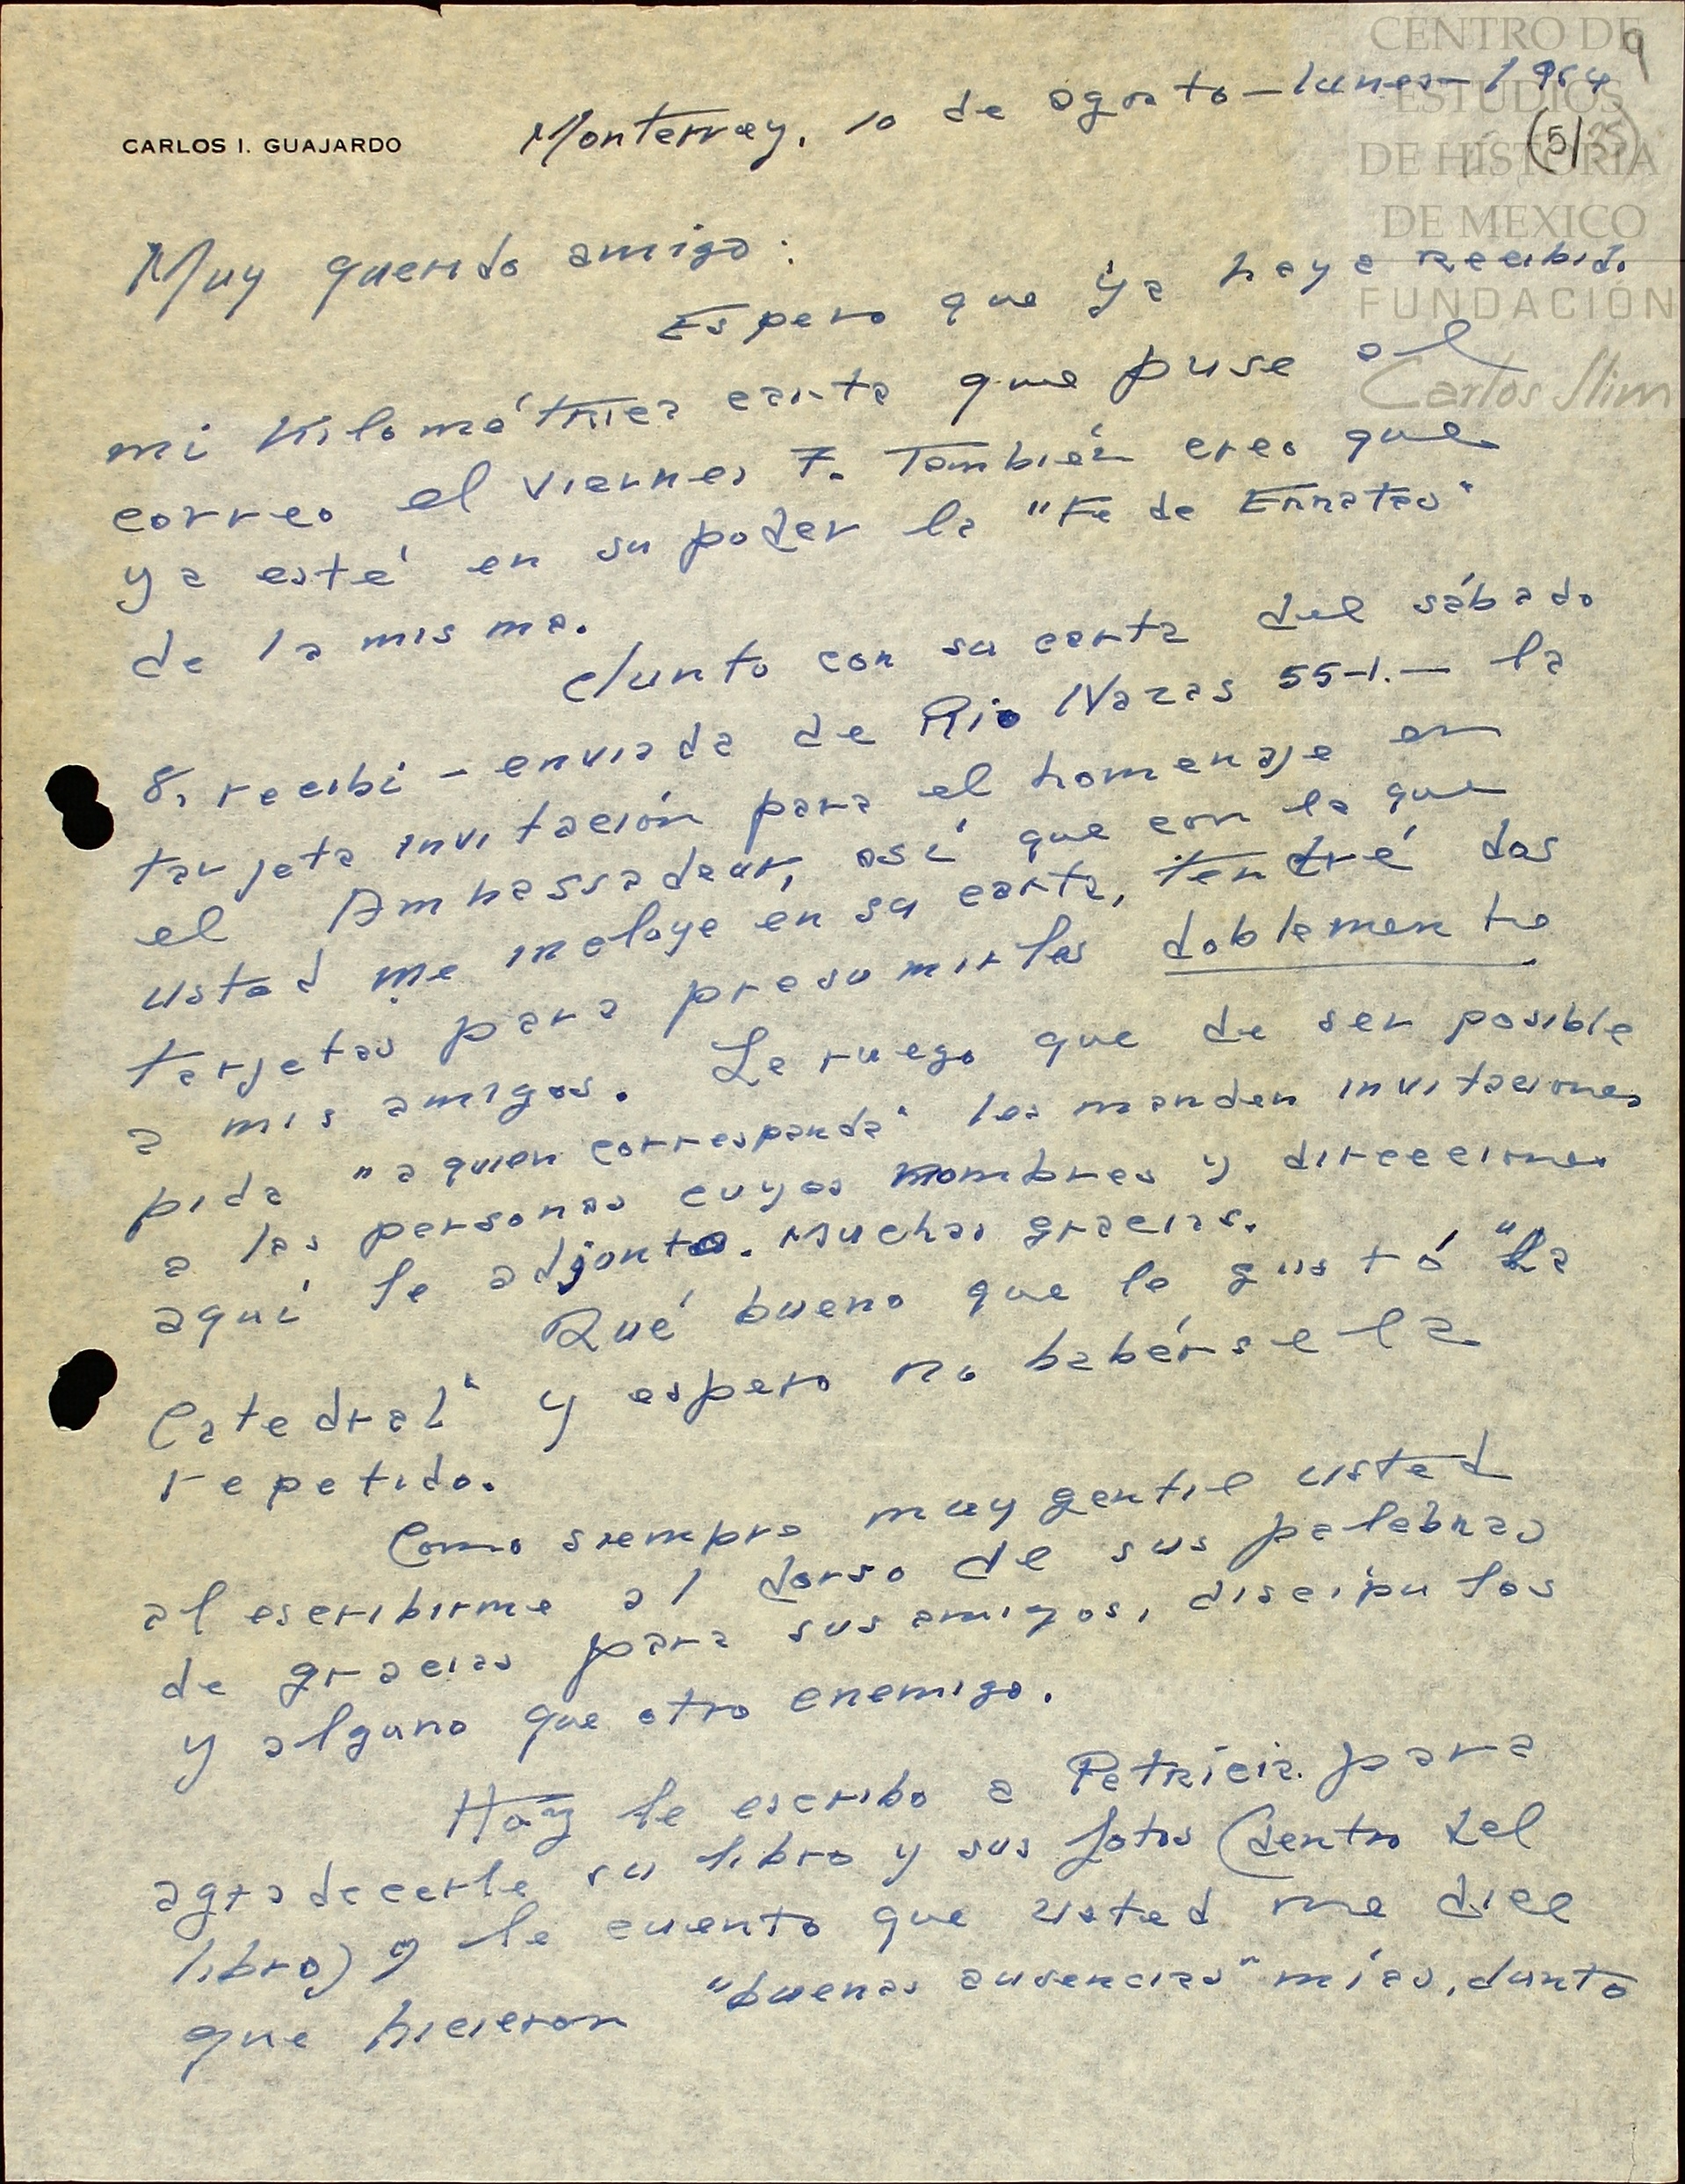 CENTRO DE
ESTUDIOS
DE HISTORIA
DE MEXICO
FUNDACIÓN
Carlos Slim
9
(5/25)
CARLOS I. GUAJARDO
Monterrey, 10 de agosto - lunes - 1964
Muy querido amigo:
Espero que ya haya recibido
mi kilométrica carta que puse al
correo el viernes 7. También creo que
ya esté en su poder la "Fe de Erratas"
de la misma.
Junto con su carta del sábado
8, recibí - enviada de Rio Nazas 55-1. - la
tarjeta invitación para el homenaje en
el Ambassadeur, así que con la que
usted me incluye en su carta, tendré dos
tarjetas para presumirles doblemente
a mis amigos. Le ruego que de ser posible
pida "a quien corresponda" les manden invitaciones
a las personas cuyos nombres y direcciones
aquí le adjunto. Muchas gracias.
Qué bueno que le gustó "La
Catedral" y espero no habérsela
repetido.
Como siempre muy gentil usted
al escribirme al dorso de sus palabras
de gracias para sus amigos, discípulos
y alguno que otro enemigo.
Hoy le escribo a Patricia para
agradecerle su libro y sus fotos (dentro del
libro) y le cuento que usted me dice
que hicieron "buenas ausencias" mías, junto